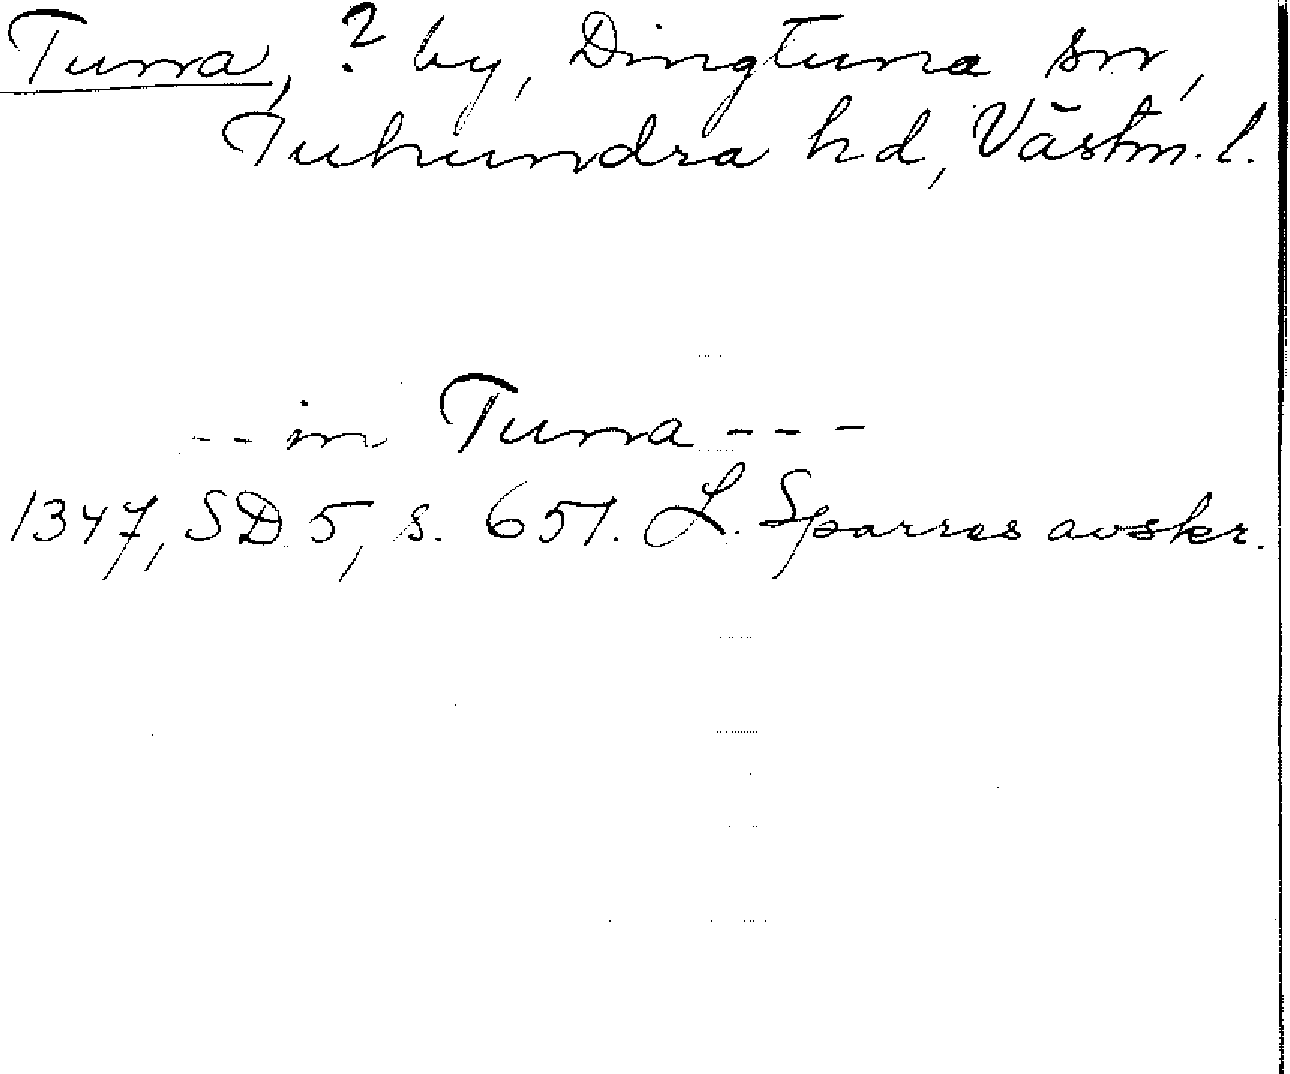 Tuna, ? by, Dingtuna sn,
Tuhundra hd, Västm. l.
-- in Tuna ---
1347, SD 5, s. 651. L. Sparres avskr.